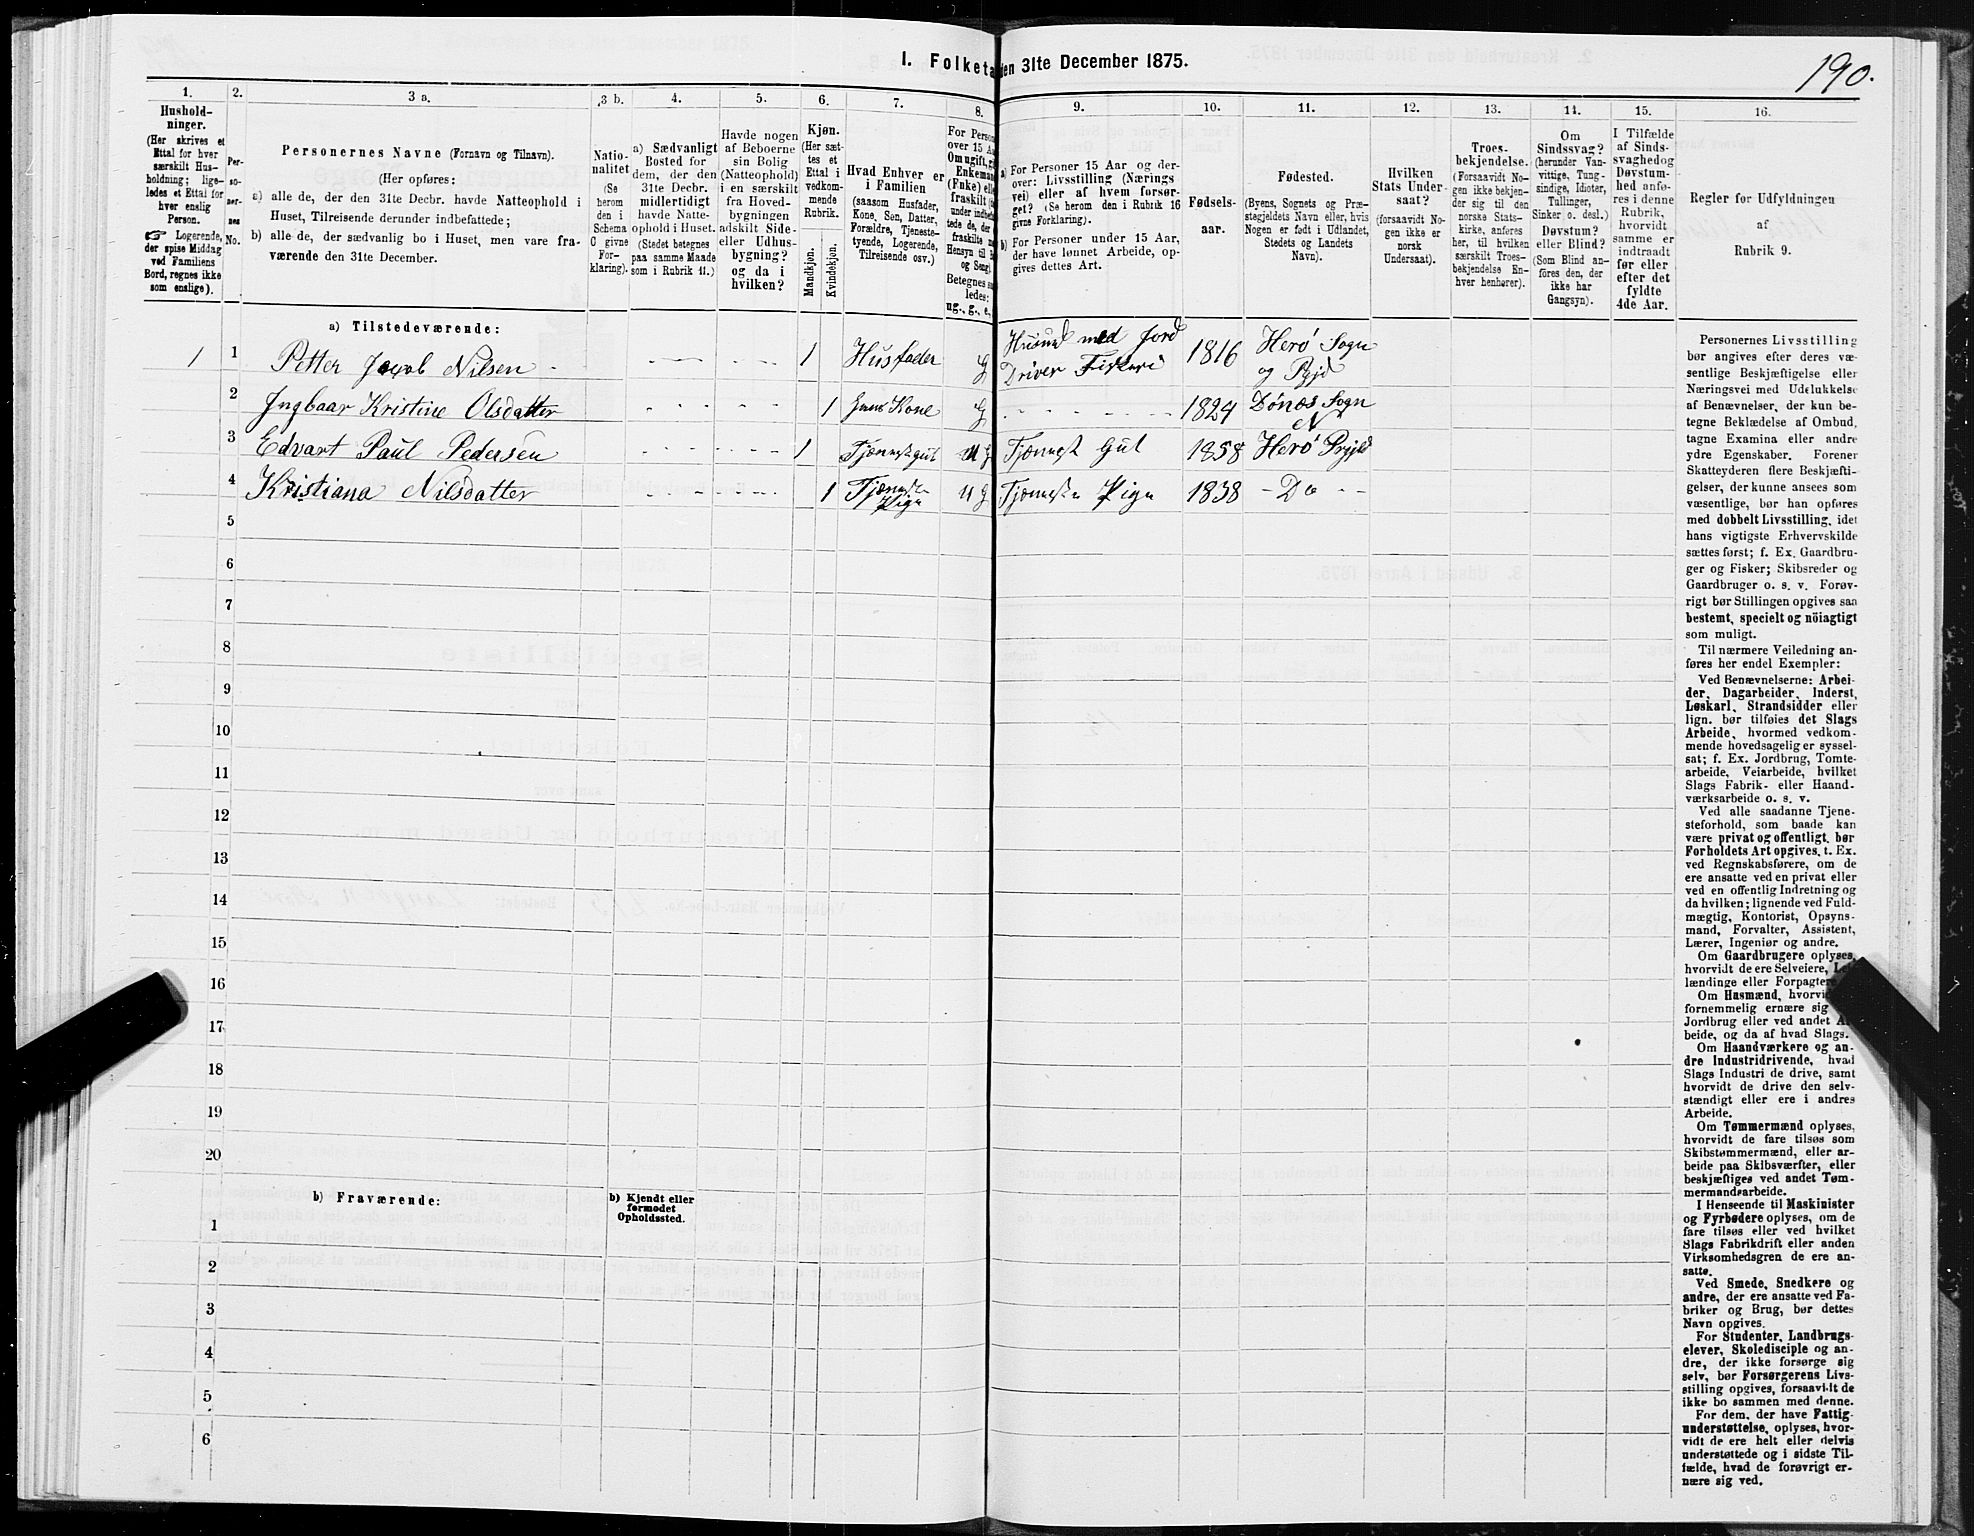 190.
I. Folketa
den 31te December 1875.
1.
2.
3 a.
3 b.
4.
5.
6.
7.
8.
9.
10.
11.
12.
13.
14.
15.
16.
Hushold-
ninger.
(Her skrives et
Ettal for hver
særskilt Hus-
holdning; lige-
ledes et Ettal for
hver enslig
Person.
☞ Logerende,
der spise Middag
ved Familiens
Bord, regnes ikke
som enslige).
Per-
so-
ner-
nes
No.
Personernes Navne (Fornavn og Tilnavn).
(Her opføres:
a) alle de, der den 31te Decbr. havde Natteophold i
Huset, Tilreisende derunder indbefattede;
b) alle de, der sædvanlig bo i Huset, men vare fra-
værende den 31te December.
Natio-
nalitet
(Se
herom
den i
Schema
C givne
For-
klaring).
a) Sædvanligt
Bosted for
dem, der den
31te Decbr.
midlertidigt
havde Natte-
ophold i Huset.
(Stedet betegnes
paa samme Maade
som i Rubrik 11.)
Havde nogen
af Beboerne
sin Bolig
(Natteophold)
i en særskilt
fra Hoved-
bygningen
adskilt Side-
eller Udhus-
bygning?
og da i
hvilken?
Kjøn.
(Her sæt-
tes et
Ettal i
vedkom-
mende
Rubrik.
Mandkjøn.
Kvindekjøn.
Hvad Enhver er
i Familien
(saasom Husfader,
Kone, Søn, Datter,
Forældre, Tjeneste-
tyende, Logerende,
Tilreisende osv.)
For Person
over 15 Aa
Om ugift, gi
Enkeman
(Fnke) elle
fraskilt (s
under indbe
tede de, der
fraskilte m
Hensyn til B
og Seng).
Betegnes sa
ledes:
ug., g., e.,
a) For Personer 15 Aar og der-
over: Livsstilling (Nærings
vei) eller af hvem forsør-
get? (Se herom den i Rubrik 16
givne Forklaring).
b) For Personer under 15 Aar,
der have lønnet Arbeide, op-
gives dettes Art.
Fødsels-
aar.
Fødested.
(Byens, Sognets og Præ-
stegjeldets Navn eller, hvis
Nogen er født i Udlandet,
Stedets og Landets
Navn).
Hvilken
Stats Under-
saat?
(forsaavidt No-
gen ikke er
norsk
Undersaat).
Troes-
bekjendelse.
(Forsaavidt No-
gen ikke bekjen-
der sig til den
norske Stats-
kirke, anføres
her, til hvilken
særskilt Troes-
bekjendelse En-
hver henhører).
Om
Sindssvag?
(herunder Van-
vittige, Tung-
sindige, Idioter,
Tullinger,
Sinker o. desl.)
Døvstum?
eller Blind?
(Som Blind an-
føres den, der
ikke har
Gangsyn).
I Tilfælde
af Sinds-
svaghedog
Døvstum-
hed anfø-
res i denne
Rubrik,
hvorvidt
samme er
indtraadt
før eller
efter det
fyldte
4de Aar.
Regler for Udfyldningen
af
Rubrik 9.
a) Tilstedeværende:
1 1 Petter Jacob Nilsen 1 Husfader g Husmd med Jord
Driver Fiskeri 1816 Herø Sogn
og Pgjd
2 Ingbaar Kristine Olsdatter 1 Hans Kone g 1824 Dønæs Sogn
3 Edvart Paul Pedersen 1 Tjenestgut u g Tjennest Gut 1858 Herø Prgjld
4 Kristiana Nilsdatter 1 Tjeneste
Pige u g Tjenneste Pige 1838 – Do –
5
6
7
8
9
10
11
12
13
14
15
16
17
18
19
20
b) Fraværende:
b) Kjendt eller
formodet
Opholdssted.
1
2
3
4
5
6
Personernes Livsstilling
bør angives efter deres væ-
sentlige Beskjæftigelse eller
Næringsvei med Udelukkelse
af Benævnelser, der kun be-
tegne Beklædelse af Ombud,
tagne Examina eller andre
ydre Egenskaber. Forener
Skatteyderen flere Beskjæfti-
gelser, der kunne ansees som
væsentlige, bør han opføres
med dobbelt Livsstilling, idet
hans vigtigste Erhvervskilde
sættes først; f. Ex. Gaardbru-
ger og Fisker; Skibsreder og
Gaardbruger o. s. v. Forøv-
rigt bør Stillingen opgives saa
bestemt, specielt og nöiagtigt
som muligt.
Til nærmere Veiledning an-
føres her endel Exempler:
Ved Benævnelserne: Arbei-
der, Dagarbeider, Inderst,
Løskarl, Strandsidder eller
lign. bør tilføies det Slags
Arbeide, hvormed vedkom-
mende hovedsagelig er syssel-
sat; f. Ex. Jordbrug, Tomte-
arbeide, Veiarbeide, hvilket
Slags Fabrik- eller Haand-
værksarbeide o. s. v.
Ved alle saadanne Tjene-
steforhold, som baade kan
være privat og offentligt, bør
Forholdets Art opgives, t. Ex.
ved Regnskabsførere, om de
ere ansatte ved en privat eller
ved en offentlig Indretning og
da hvilken; lignende ved Fuld-
mægtig, Kontorist, Opsyns-
mand, Forvalter, Assistent,
Lærer, Ingeniør og andre.
Om Gaardbrugere oplyses,
hvorvidt de ere Selveiere, Lei
lændinge eller Forpagtere
Om Husmænd, hvorvi
fornemmelig ernære sig
Jordbrug eller ved andet A
beide, og da af hvad Slags.
Om Haandværkere og an-
dre Industridrivende, hvad
Slags Industri de drive, samt
hvorvidt de drive den selv-
stændigt eller ere i andres
Arbeide.
Om Tømmermænd oplyses,
hvorvidt de fare tilsøs som
Skibstømmermænd, eller ar-
beide paa Skibsværfter, eller
beskjæftiges ved andet Tøm-
mermandsarbeide.
I Henseende til Maskinister
og Fyrbødere oplyses, om de
fare tilsøs eller ved hvilket
Slags Fabrikdrift eller anden
Virksomhedsgren de ere an-
satte.
Ved Smede, Snedkere og
andre, der ere ansatte ved Fa-
briker og Brug, bør dettes
Navn opgives.
For Studenter, Landbrugs-
elever, Skoledisciple og an-
dre, der ikke forsørge sig
selv, bør Forsørgerens Livs-
stilling opgives, forsaavidt de
ikke bo sammen med denne.
For dem, der have Fattig-
understøttelse, oplyses, hvor-
vidt de ere helt eller delvis
understøttede og i sidste Til-
fælde, hvad de forøvrigt er-
nære sig ved.